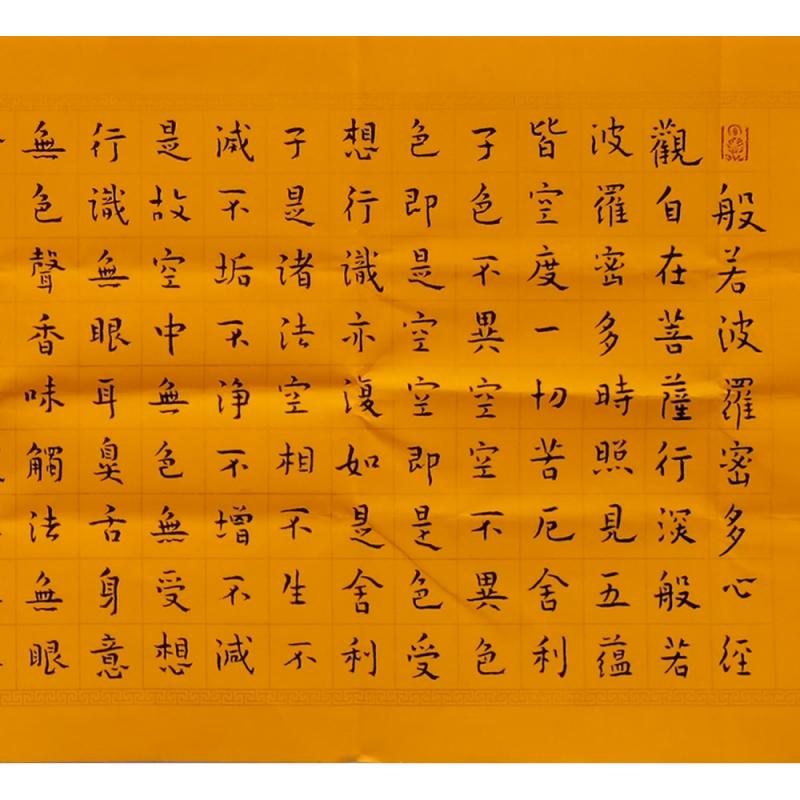 般若波羅密多心經
觀自在菩薩行深般若
波羅密多時照見五蘊
皆空度一切苦厄舍利
子色不異空空不異色
色即是空空即是色受
想行識亦復如是舍利
子是諸法空相不生不
滅不垢不淨不增不減
是故空中無色無受想
行識無眼耳鼻舌身意
無色聲香味觸法無眼